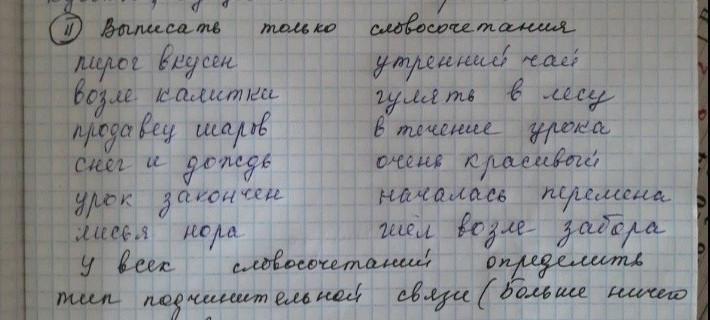 II Выписать только словосочетания
пирог вкусен утренний чай
возле калитки гулять в лесу
продавец шаров в течение урока
снег и дождь очень красивый
урок закончен началась перемена
лисья нора шёл возле забора
У всех словосочетаний определить
тип подчинительной связи (больше ничего